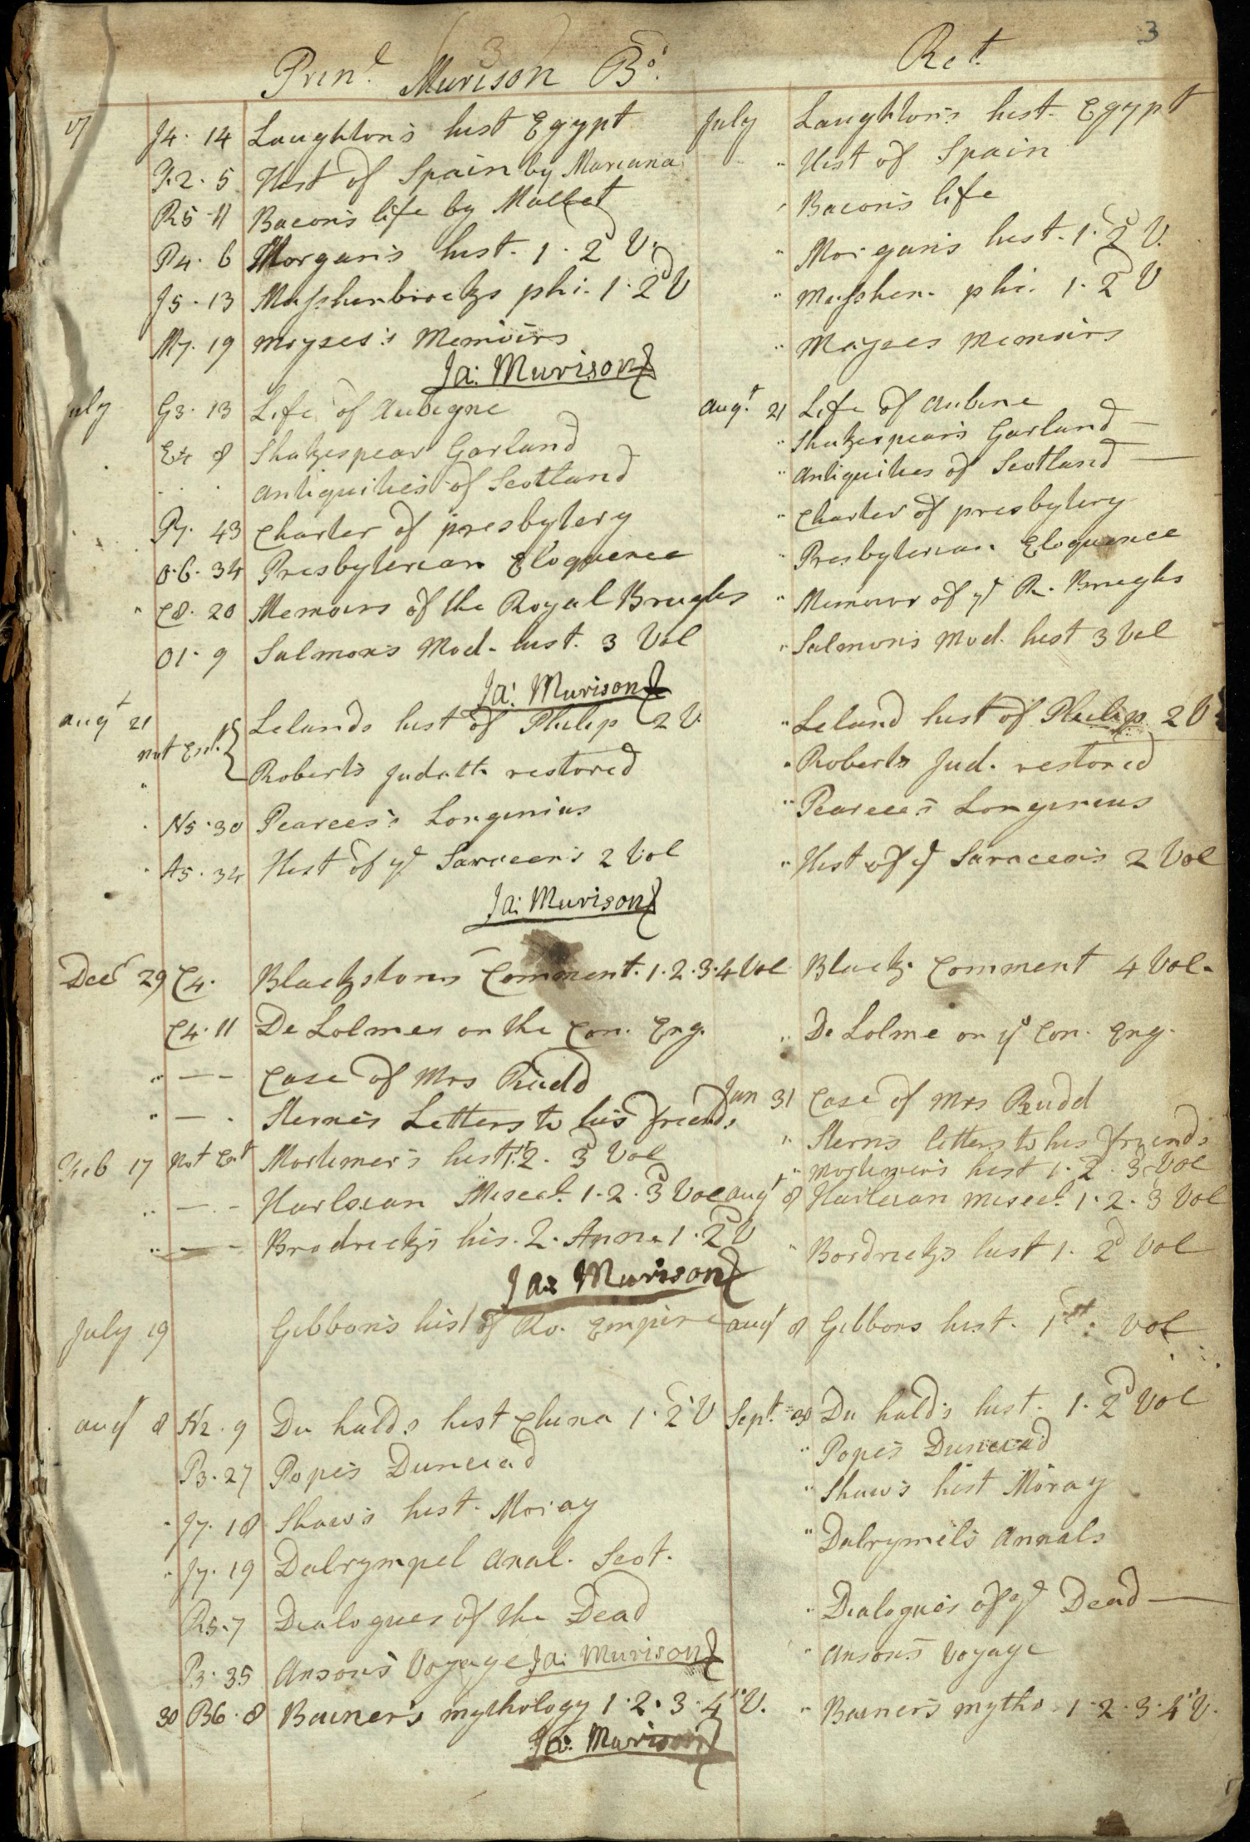 3
3
Prin.l Murison Bo. Ret.
17 J4. 14 Laughton's hist Egypt July Laughton's hist. Egypt
F.2. 5 Hist of Spain by Mariana " Hist of Spain
R5. 11 Bacon's life by Mallet " Bacon's life
P4. 6 Morgan's hist. 1. 2d V. " Morgan's hist. 1. 2d V.
J5. 13 Musshenbroeks phi. 1. 2d V " Musshen. phi. 1. 2d V
M7. 19 Moyses's Memoirs " Moyses Memoirs
Ja: Murison
July G3. 13 Life of Aubigne Augt. 21 Life of Aubine
E4 8 Shakespear Garland " Shakespear's Garland —
. . antiquities of Scotland " Antiquities of Scotland —
P7. 43 Charter of presbytery " Charter of presbytery
O.6. 34 Presbyterian Eloquence " Presbyterian Eloquence
" C8. 20 Memoirs of the Royal Brughs " Memoirs of ye R. Brughs
O1. 9 Salmon's Mod. hist. 3 Vol " Salmon's Mod. hist 3 Vol
Ja: Murison
augt 21 not Ent. Lelands hist of Philip 2 V. " Leland hist of Philip 2 V
" Roberts Judath restored " Roberts Jud. restored
N5. 30 Pearces's Longinius " Pearces's Longinius
" A5. 34 Hist of ye Saracen's 2 Vol " Hist of ye Saracen's 2 Vol
Ja: Murison
Decr 29 C4. Blackstones Comment. 1. 2. 3. 4 Vol Black. Comment 4 Vol.
C4. 11 De Lolmes on the Con. Eng. " De Lolme on ye Con. Eng.
" — — Case of Mrs Rudd Jan 31 Case of Mrs Rudd
" — . Sterne's Letters to his friends " Sterns letters to his friends
Feb 17 Not Ent Mortimer's hist 1. 2. 3d Vol " Mortimer's hist 1. 2. 3d Vol
" — - Harleian Miscel. 1. 2. 3d Vol augt 8 Harleian miscel. 1. 2. 3 Vol
" — - Brodrick's his. 2. Anne 1. 2d V " Bordricks hist 1. 2d Vol
Ja: Murison
July 19 Gibbon's hist of Ro. Empire augt 8 Gibbons hist. 1st. vol
augt 8 N2. 9 Du halds hist China 1. 2d V Sept. 30 Du hald's hist. 1. 2d Vol
P3. 27 Pope's Dunciad " Pope's Dunciad
J7. 18 Shaw's hist. Moray " Shaw's hist Moray
J7. 19 Dalrympel anal. Scot. " Dalrymel's Annals
R5. 7 Dialogues of the Dead " Dialogues of ye Dead —
P3. 35 Anson's Voyage Ja: Murison " anson's voyage
30 B6. 8 Bainer's mythology 1. 2. 3. 4th V. " Bainer's mytho. 1. 2. 3. 4th V.
Ja: Murison